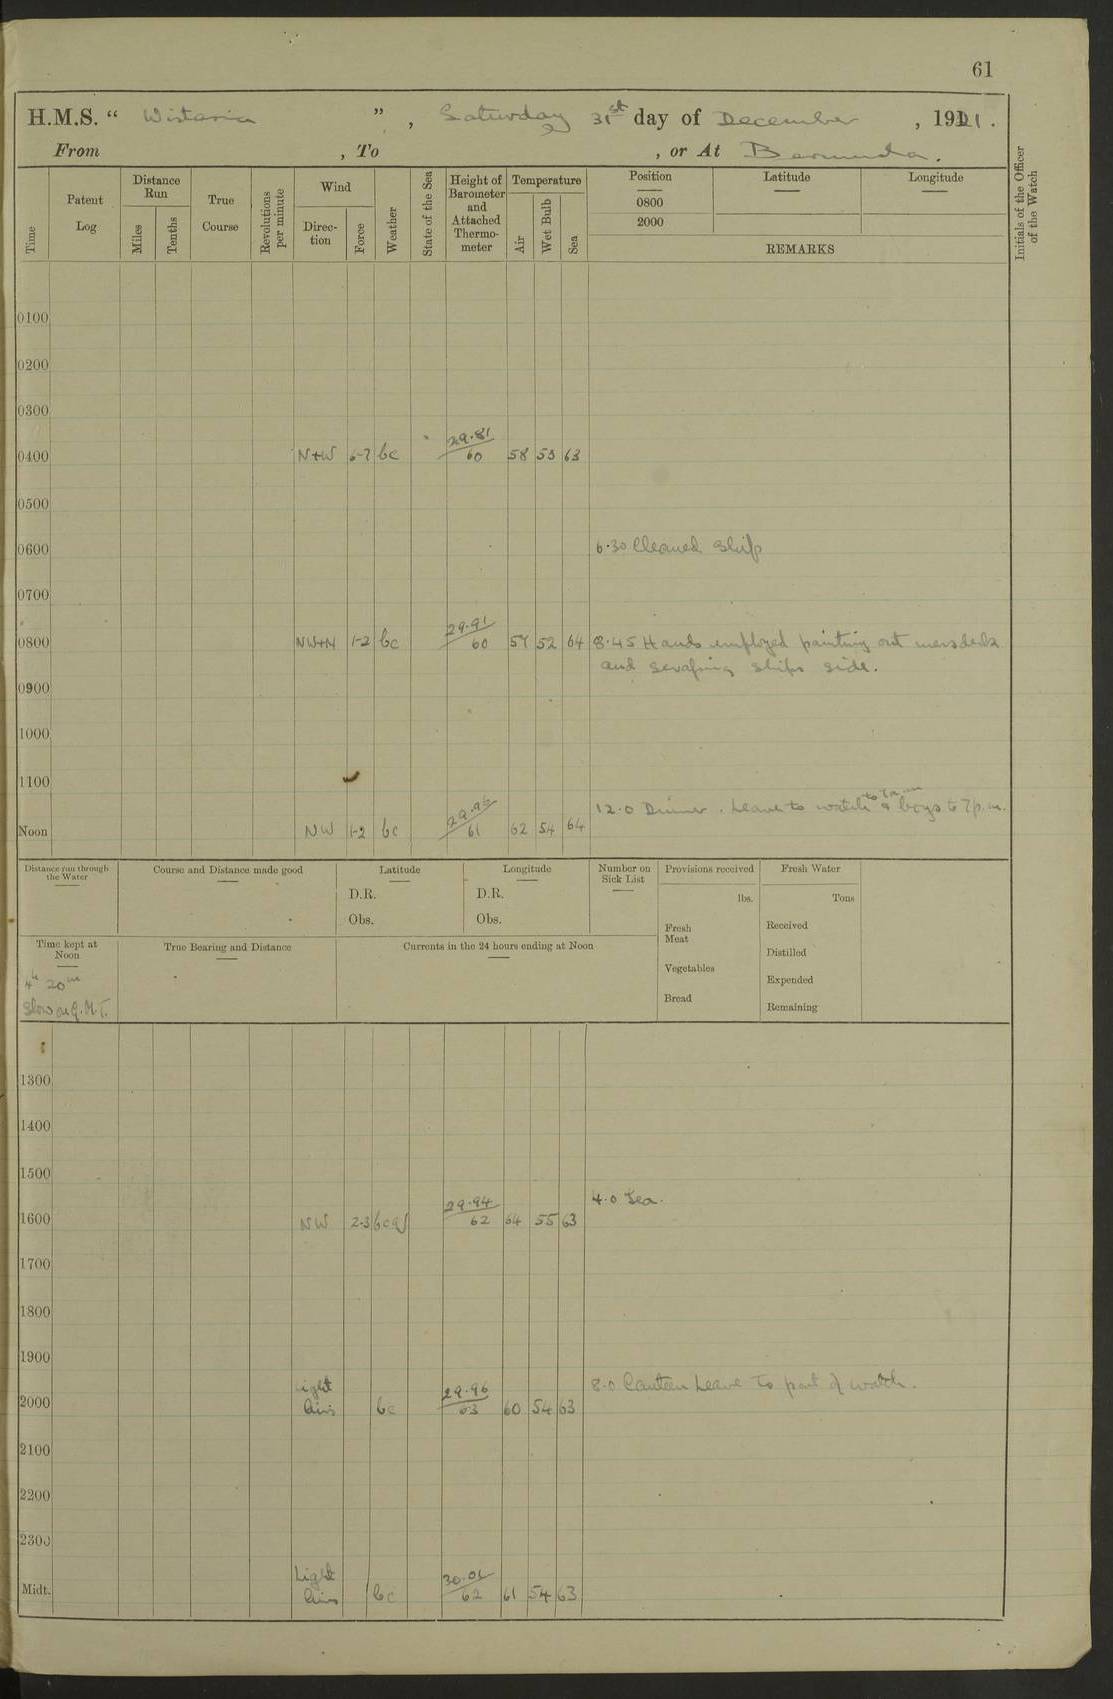 61
H.M.S. “ Wistaria ” , Saturday 31st day of December , 1921 .
From , To , or At Bermuda .
Time
Patent Log
Distance Run
Miles
Tenths
True Course
Revolutions per minute
Wind
Direc-tion
Force
Weather
State of the Sea
Height of Barometer and Attached Thermo-meter
Temperature
Air
Wet Bulb
Sea
Position
0800
2000
Latitude
Longitude
REMARKS
Initials of the Officer of the Watch
0100
0200
0300
29.81
0400 N+W 6-7 bc 60 58 53 63
0500
0600 6.30 Cleaned Ship
0700
29.91
0800 NW+N 1-2 bc 60 57 52 64 8.45 Hands employed painting out messdeck
and scraping ships side.
0900
1000
1100
to 7 a.m.
29.96 12.0 Dinner. Leave to watch & boys to 7 p.m.
Noon NW 1-2 bc 61 62 54 64
Distance run through the Water
Course and Distance made good
Latitude
D.R.
Obs.
Longitude
D.R.
Obs.
Number on Sick List
Provisions received
lbs.
Fresh Meat
Vegetables
Bread
Fresh Water
Tons
Received
Distilled
Expended
Remaining
Time kept at Noon
4h 20m
Slow on G.M.T.
True Bearing and Distance
Currents in the 24 hours ending at Noon
1300
1400
1500
29.94 4.0 Tea.
1600 NW 2-3 bcq 62 64 55 63
1700
1800
1900
Light 29.96 8.0 Canteen Leave to part of watch.
2000 Airs bc 63 60 54 63
2100
2200
2300
Light 30.01
Midt. Airs bc 62 61 54 63